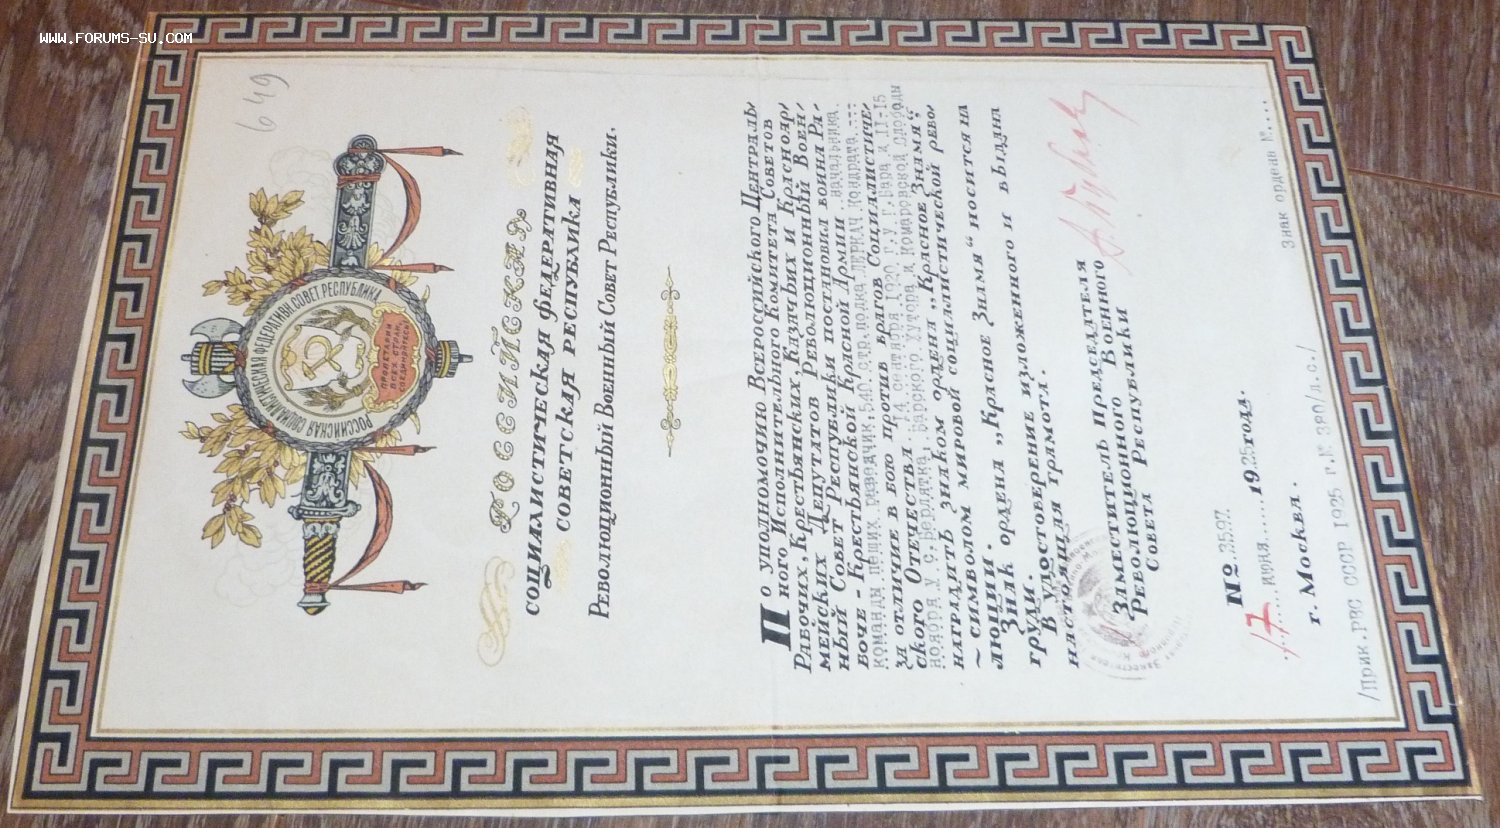 WWW.FORUMS-SU.COM
649
РОССИЙСКАЯ СОЦИАЛИСТИЧЕСКАЯ ФЕДЕРАТИВН. СОВЕТ. РЕСПУБЛИКА
ПРОЛЕТАРИИ
ВСЕХ СТРАН,
СОЕДИНЯЙТЕСЬ!
РОССИЙСКАЯ
СОЦИАЛИСТИЧЕСКАЯ ФЕДЕРАТИВНАЯ
СОВЕТСКАЯ РЕСПУБЛИКА
Революционный Военный Совет Республики.
По уполномочию Всероссийского Централь-
ного Исполнительного Комитета Советов
Рабочих, Крестьянских, Казачьих и Красноар-
мейских Депутатов Революционный Воен-
ный Совет Республики постановил воина Ра-
боче-Крестьянской Красной Армии начальника
команды пеших разведчик. 540 стр. полка ЛЕРКАЧ Кондрата
за отличие в бою против врагов Социалистиче-
ского Отечества 4 сентября 1920 г. у и 11-15
ноября у с. хутора и Комаровской слободы
наградить знаком ордена „Красное Знамя“,
~ символом мировой социалистической рево-
люции.
Знак ордена „Красное Знамя“ носится на
груди.
В удостоверение изложенного и выдана
настоящая грамота.
Заместитель Председателя
Революционного Военного
Совета Республики
№ 3597
17 июня 1925 года.
г. Москва.
Знак ордена №....
/Прик. РВС СССР 1925 г. № 380/л.с./